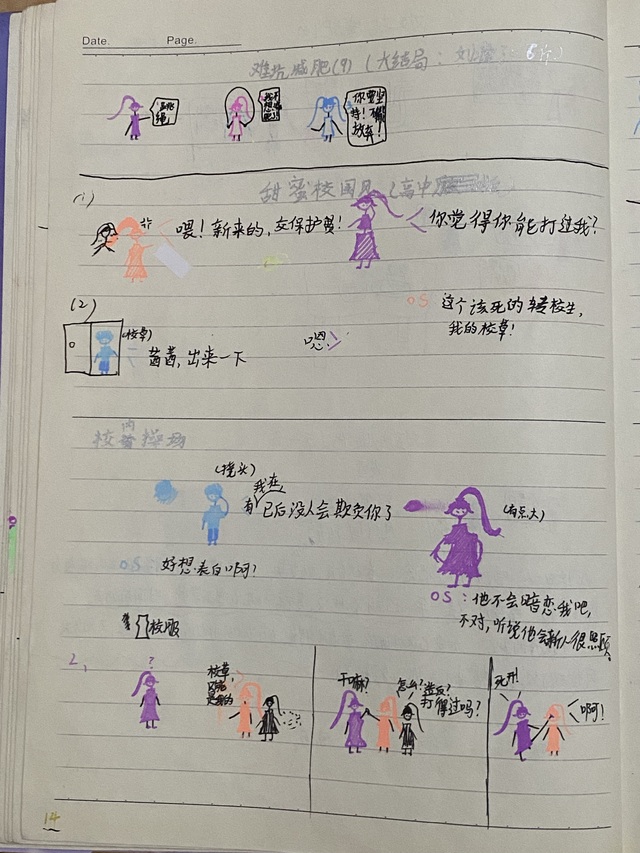 Date. Page.
难忘减肥(9)(大结局:
你要坚
持!不能
放弃!
甜蜜校园风(高中
(1)
喂!新来的,交保护费!
你觉得你能打过我?
(2)
(校草)
茜茜,出来一下
嗯,
OS 这个该死的转校生,
我的校草!
校内操场
(挠头)
有我在,已后没人会欺负你了
(有点大)
OS:好想表白啊?
OS:他不会暗恋我吧,
不对,听说他会新人很照顾
校服
2,
?
校草,
干嘛?
怎么?造反?
打得过吗?
死开!
啊!
14